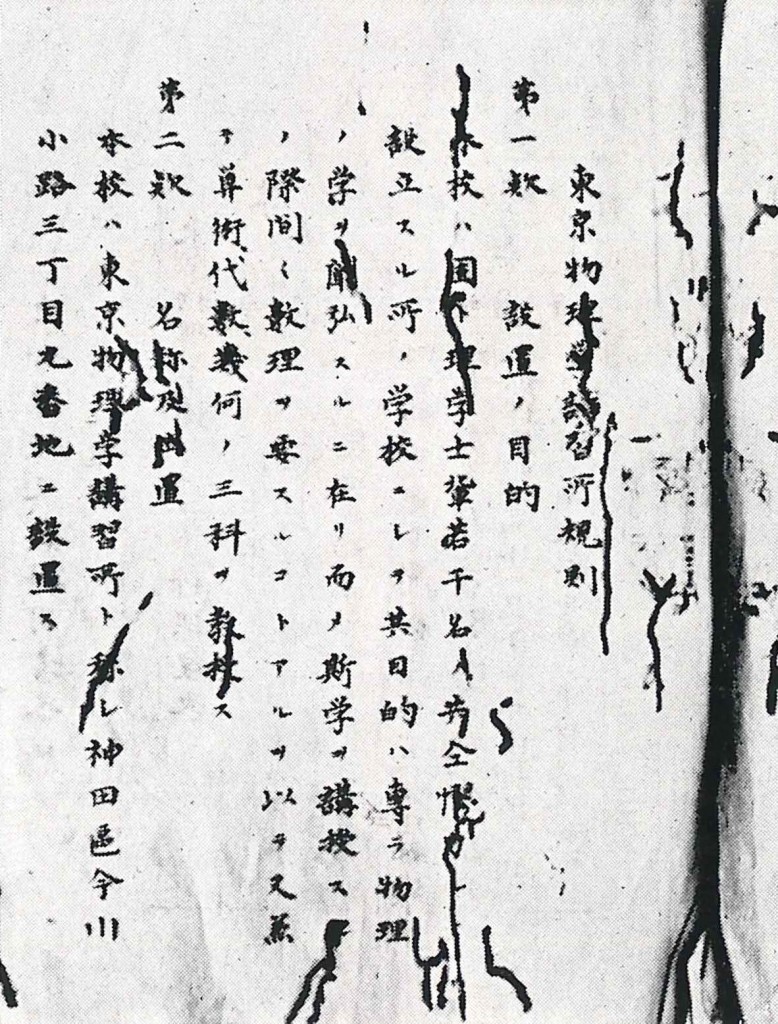 東京物理学講習所規則
第一欵　設置ノ目的
本校ハ國外理学士輩若干名ノ共仝協力シ
設立スル所ノ学校ニシテ其目的ハ専ラ物理
ノ学ヲ開弘スルニ在リ而メ斯学ヲ講授ス
ノ際間〻数理ヲ要スルコトアルヲ以ヲ又兼
テ算術代数幾何ノ三科ヲ教授ス
第二欵　名称及位置
本校ハ東京物理学講習所ト称シ神田區今川
小路三丁目九番地ニ設置ス